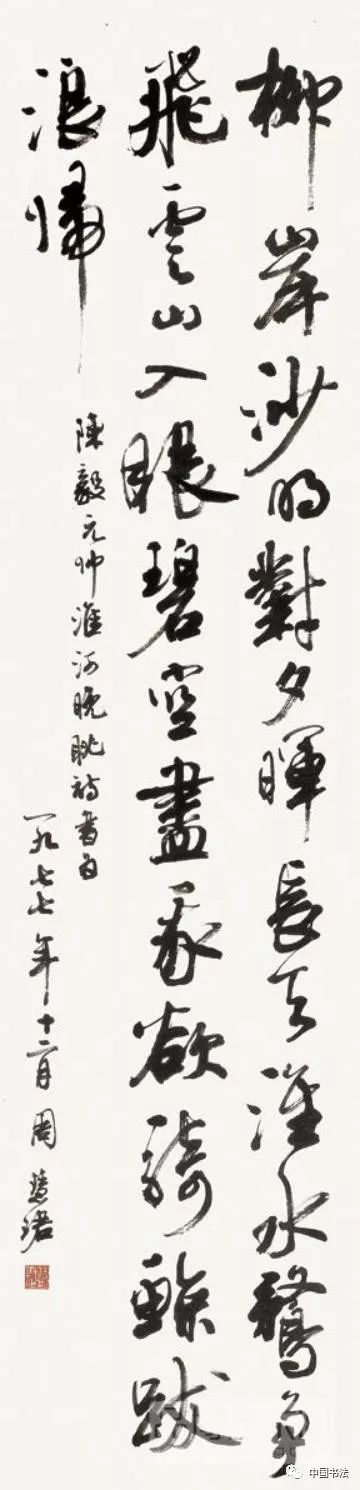 柳岸沙明對夕暉長天淮水鶩爭
飛雲山入眼碧空盡我欲騎鯨跋
浪歸
陳毅元帅淮河晚眺詩書
一九七七年十二月周慧珺
中国书法